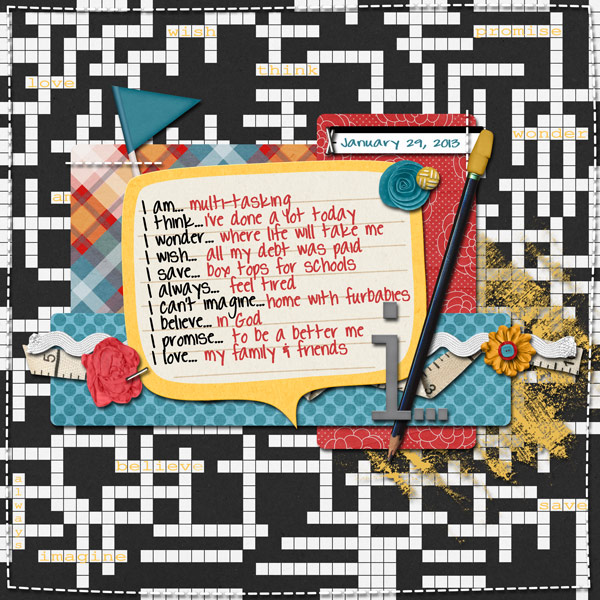 wish
promise
love
think
wonder
am
January 29, 2013
I am... multi-tasking
I think...i've done a lot today
I wonder... where life will take me
I wish... all my debt was paid
I save... box tops for schools
I always... feel tired
I can't imagine...home with furbabies
I believe... in God
I promise... to be a better me
I love... my family & friends
i...
believe
always
save
imagine